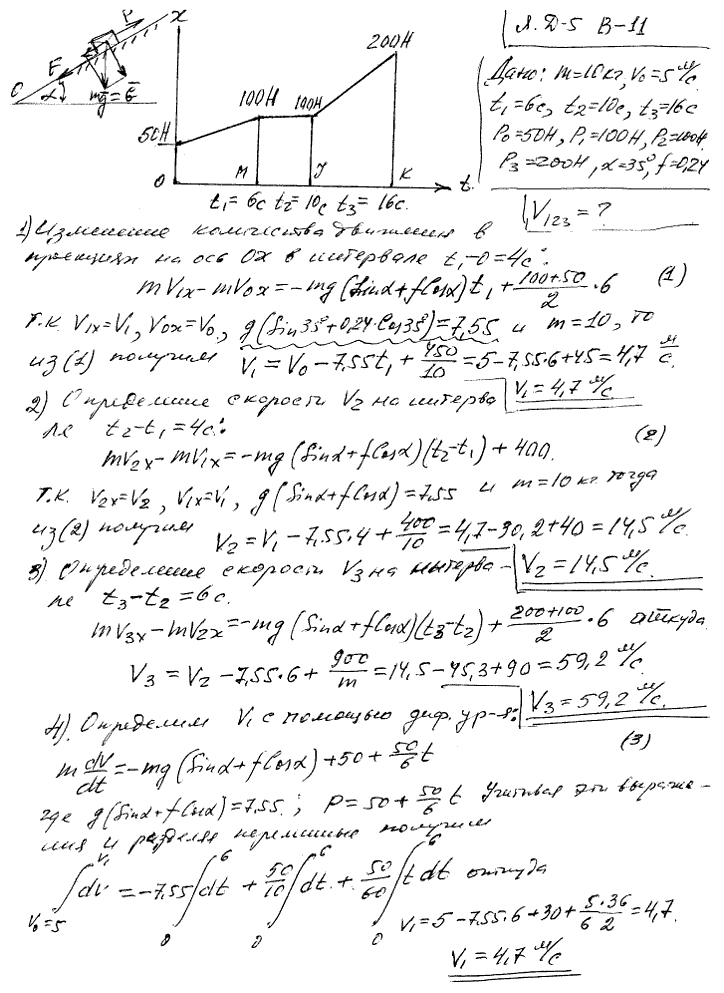 P x
F
O α mḡ = Ḡ
50Н 100Н 100Н 200Н
O М J К t
t₁ = 6с t₂ = 10с t₃ = 16с.
Д-5 В-11
Дано: m=10кг, V₀=5 м/с
t₁=6с, t₂=10с, t₃=16с
P₀=50Н, P₁=100Н, P₂=100Н.
P₃=200Н, α=35°, f=0,24
V₁₂₃ = ?
1) Изменение количества движения в
проекциях на ось OX в интервале t₁-0=4с:
mV₁ₓ - mV₀ₓ = -mg(Sinα+fCosα)t₁ + (100+50)/2 · 6 (1)
т.к. V₁ₓ=V₁, V₀ₓ=V₀, g(Sin35°+0,24·Cos35°)=7,55 и m=10, то
из (1) получим V₁ = V₀ - 7,55t₁ + 450/10 = 5-7,55·6+45 = 4,7 м/с.
V₁ = 4,7 м/с
2) Определение скорости V₂ на интерва
ле t₂-t₁ = 4с:
mV₂ₓ - mV₁ₓ = -mg(Sinα+fCosα)(t₂-t₁) + 400. (2)
т.к. V₂ₓ=V₂, V₁ₓ=V₁, g(Sinα+fCosα)=7,55 и m=10 кг тогда
из (2) получим V₂ = V₁ - 7,55·4 + 400/10 = 4,7-30,2+40 = 14,5 м/с.
V₂ = 14,5 м/с
3) Определение скорости V₃ на интерва-
ле t₃-t₂ = 6с.
mV₃ₓ - mV₂ₓ = -mg(Sinα+fCosα)(t₃-t₂) + (200+100)/2 · 6 откуда
V₃ = V₂ - 7,55·6 + 900/m = 14,5-45,3+90 = 59,2 м/с.
V₃ = 59,2 м/с.
4). Определим V₁ с помощью диф. ур-я:
m dv/dt = -mg(Sinα+fCosα)+50+50/6 t (3)
где g(Sinα+fCosα)=7,55; P=50+50/6 t Учитывая эти выраже-
ния и разделяя переменные получим
∫_{V₀=5}^{V₁} dv = -7,55 ∫₀⁶ dt + 50/10 ∫₀⁶ dt + 50/60 ∫₀⁶ t dt откуда
V₁ = 5-7,55·6+30+ 5·36/6 2 = 4,7.
V₁ = 4,7 м/с